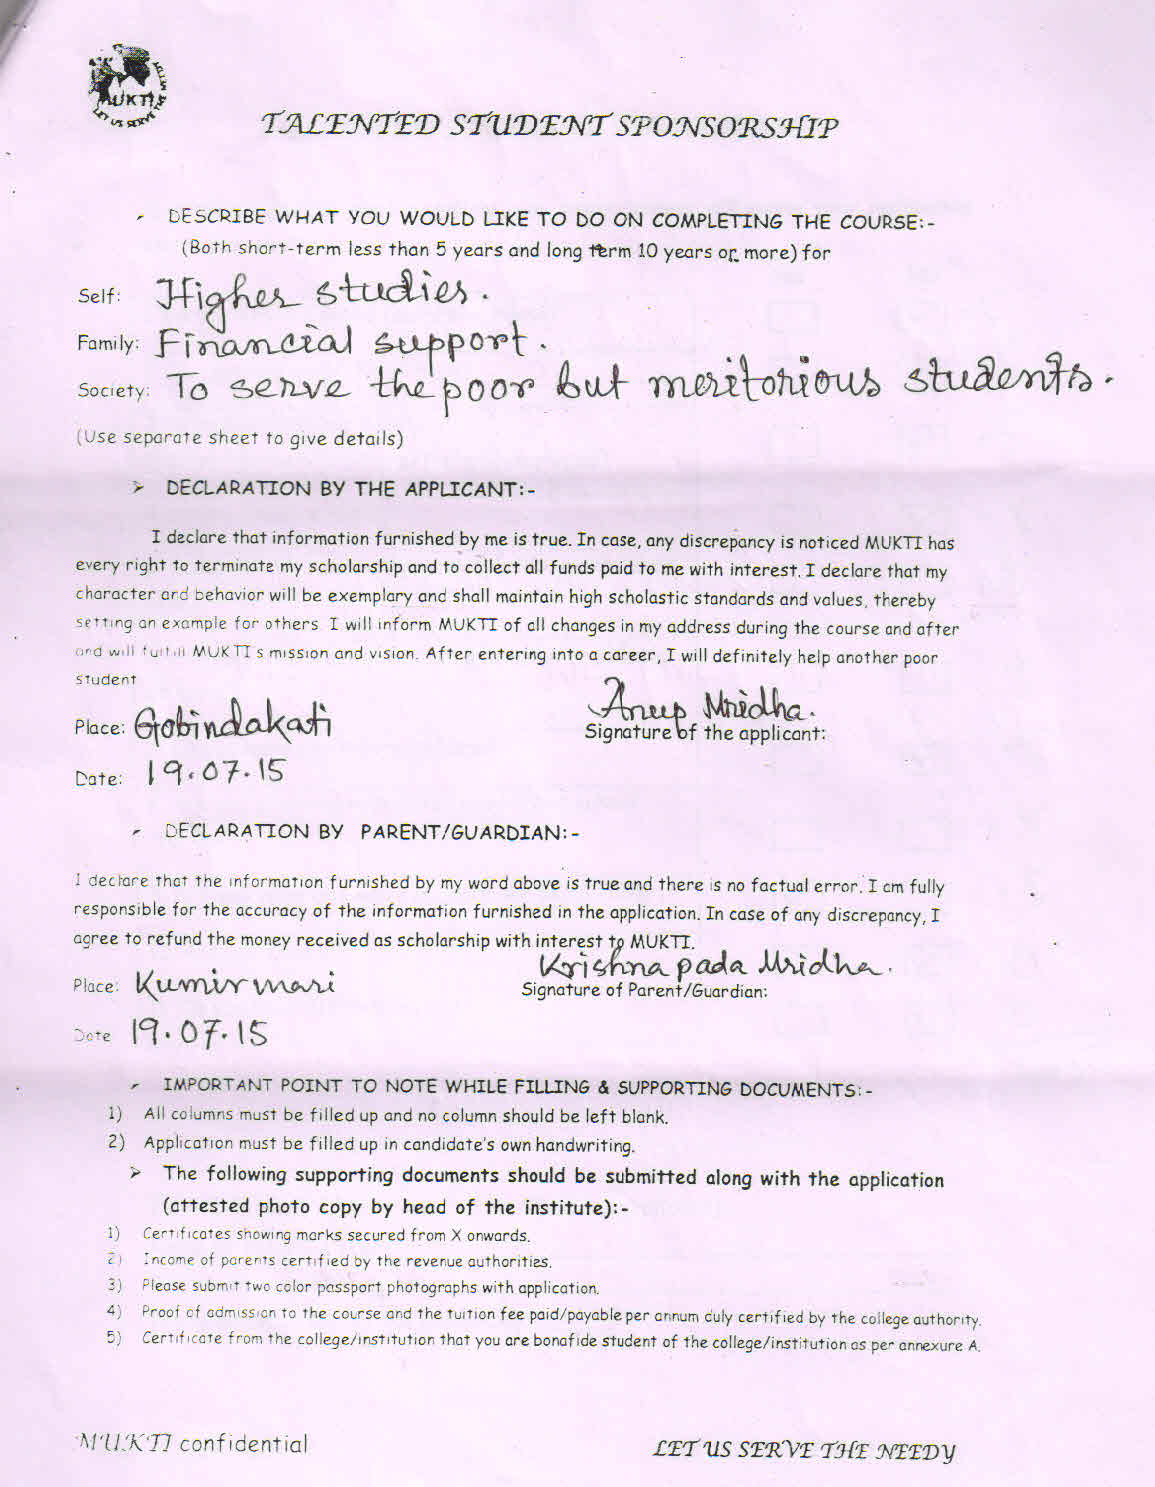 MUKTI
LET US SERVE THE NEEDY
TALENTED STUDENT SPONSORSHIP
DESCRIBE WHAT YOU WOULD LIKE TO DO ON COMPLETING THE COURSE:-
(Both short-term less than 5 years and long term 10 years or more) for
Self: Higher studies.
Family: Financial support.
Society: To serve the poor but meritorious students.
(Use separate sheet to give details)
➢ DECLARATION BY THE APPLICANT:-
I declare that information furnished by me is true. In case, any discrepancy is noticed MUKTI has
every right to terminate my scholarship and to collect all funds paid to me with interest. I declare that my
character and behavior will be exemplary and shall maintain high scholastic standards and values, thereby
setting an example for others. I will inform MUKTI of all changes in my address during the course and after
and will fulfill MUKTI's mission and vision. After entering into a career, I will definitely help another poor
student
Place: Gobindakati
Anup Mridha.
Signature of the applicant:
Date: 19.07.15
DECLARATION BY PARENT/GUARDIAN:-
I declare that the information furnished by my word above is true and there is no factual error. I am fully
responsible for the accuracy of the information furnished in the application. In case of any discrepancy, I
agree to refund the money received as scholarship with interest to MUKTI.
Krishna pada Mridha.
Place: Kumirmari
Signature of Parent/Guardian:
Date 19.07.15
IMPORTANT POINT TO NOTE WHILE FILLING & SUPPORTING DOCUMENTS:-
1) All columns must be filled up and no column should be left blank.
2) Application must be filled up in candidate's own handwriting.
➢ The following supporting documents should be submitted along with the application
(attested photo copy by head of the institute):-
1) Certificates showing marks secured from X onwards.
2) Income of parents certified by the revenue authorities.
3) Please submit two color passport photographs with application.
4) Proof of admission to the course and the tuition fee paid/payable per annum duly certified by the college authority.
5) Certificate from the college/institution that you are bonafide student of the college/institution as per annexure A.
MUKTI confidential
LET US SERVE THE NEEDY